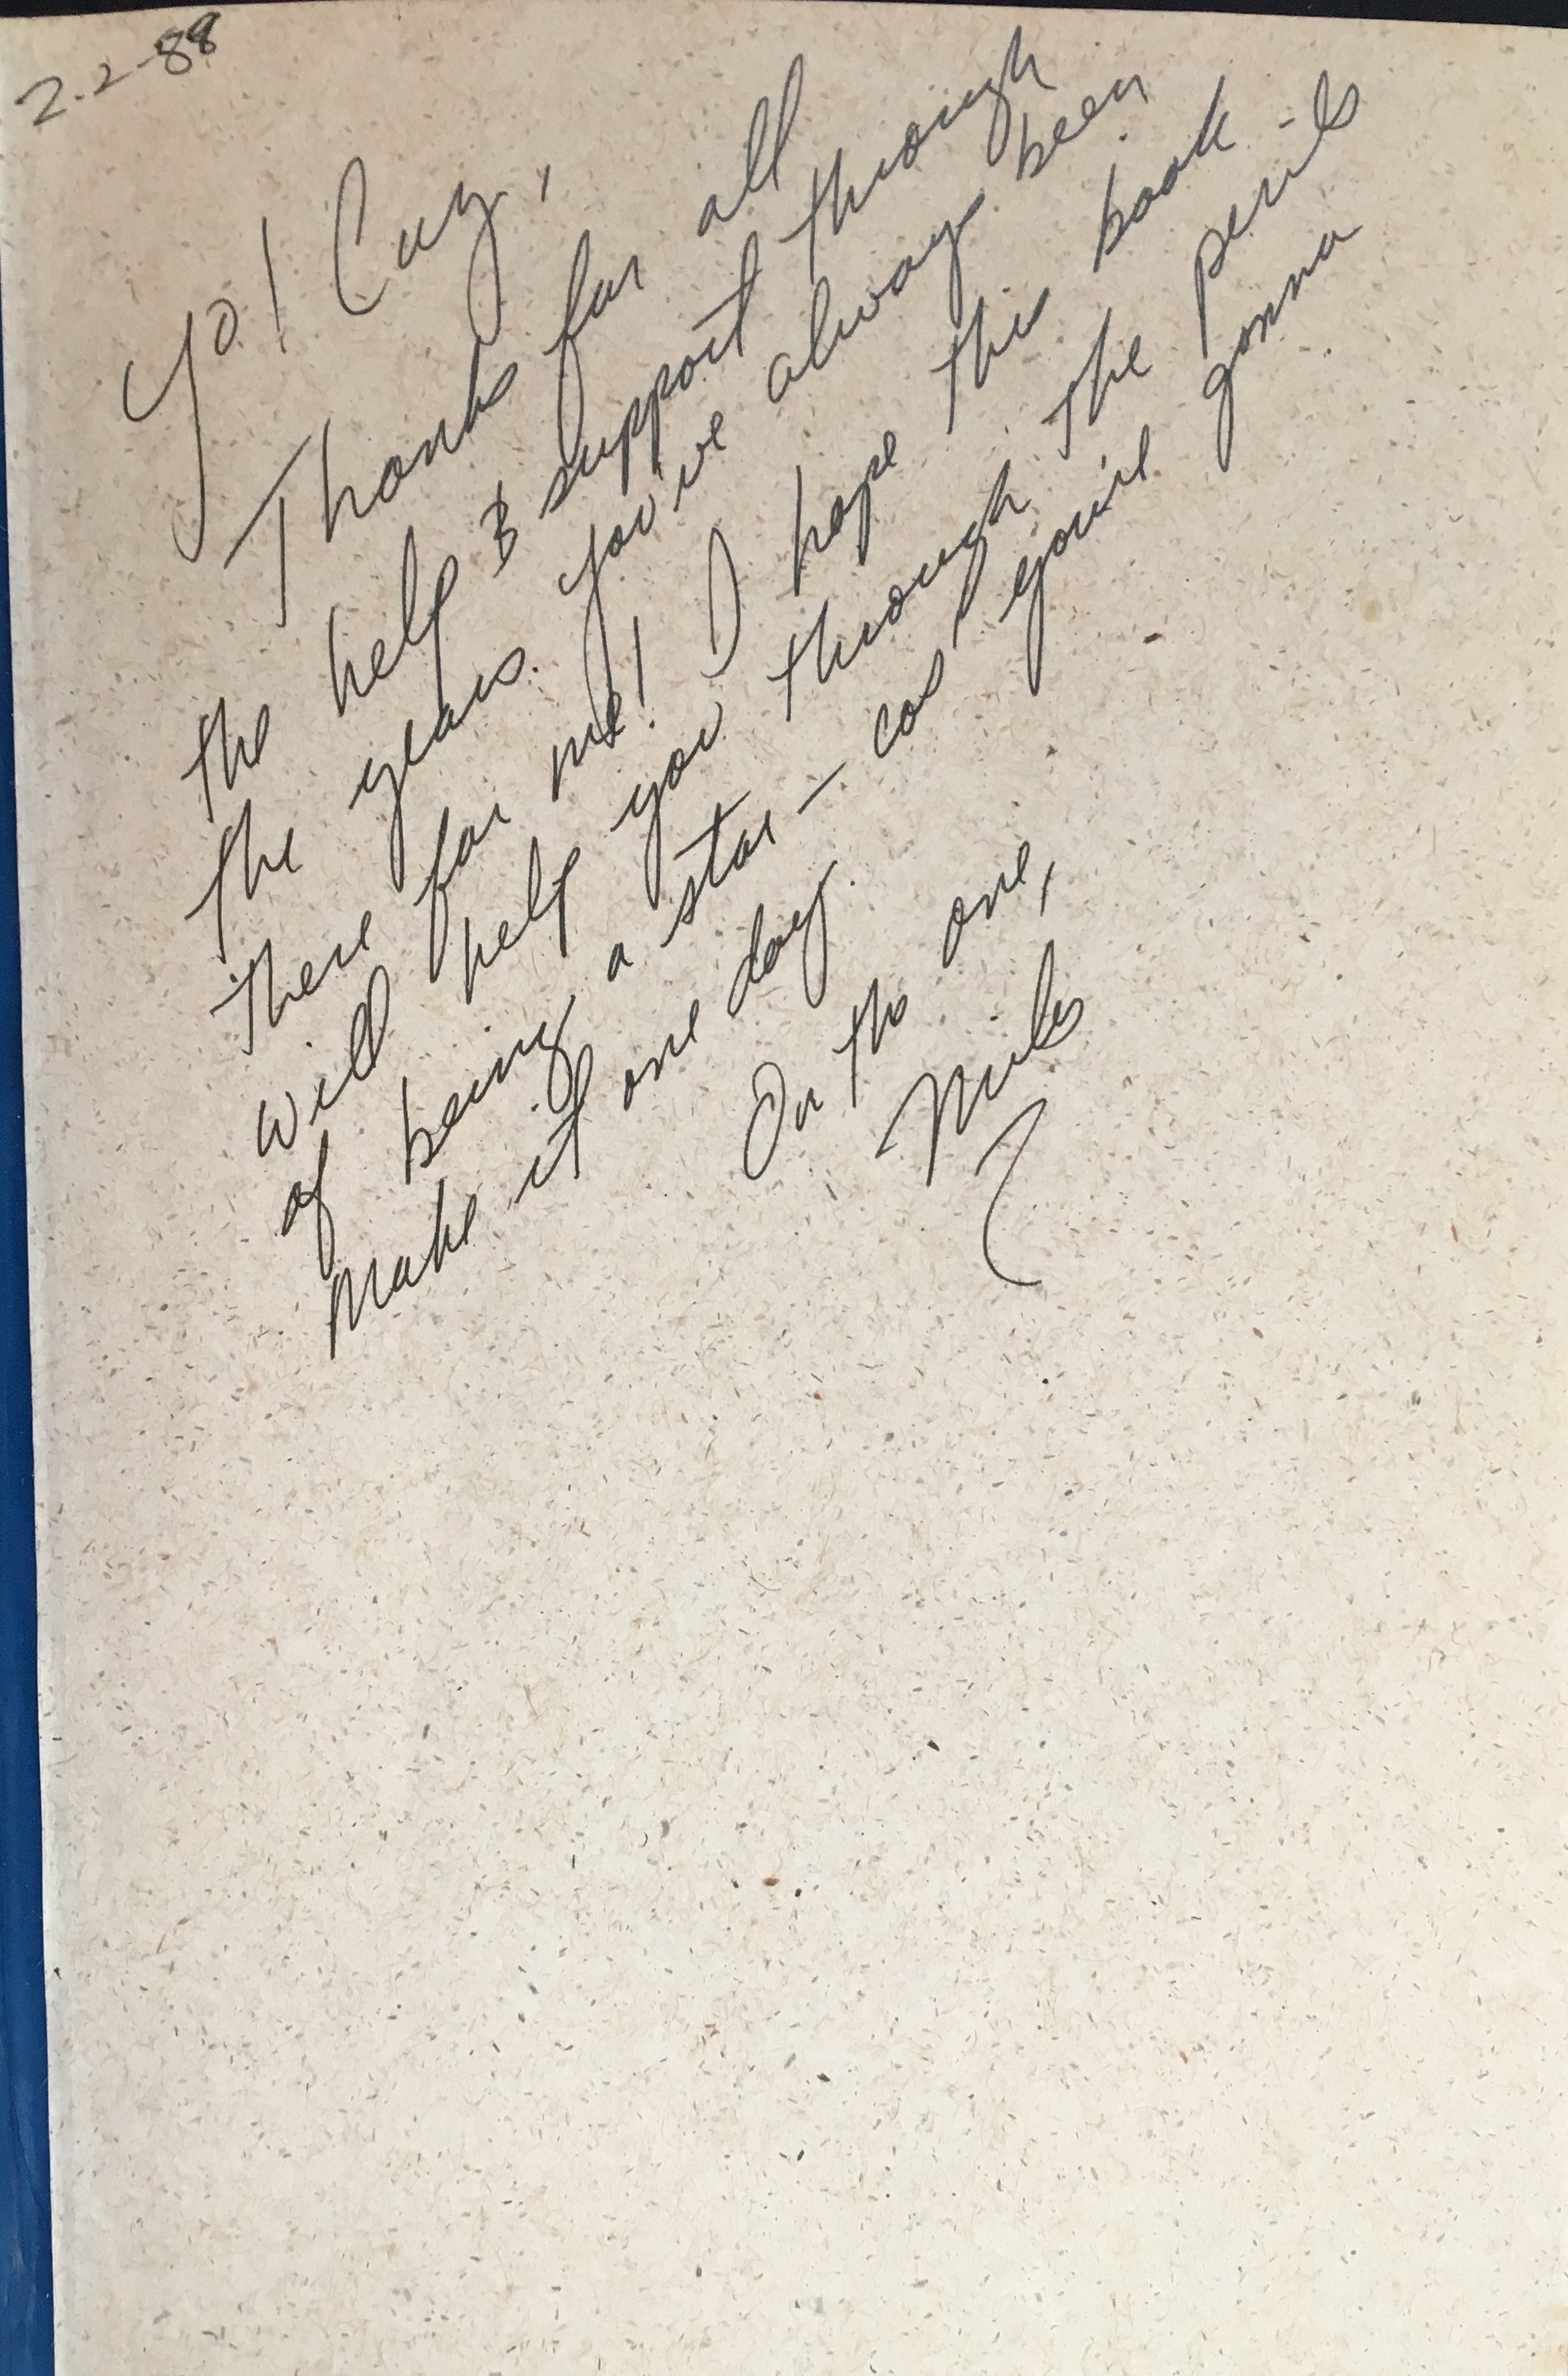 2.2-88
Yo! Cuz,
Thanks for all
the help & support through
the years. You've always been
there for me! I hope this book
will help you through the perils
of being a star – cos you're gonna
make it one day.
On the one,